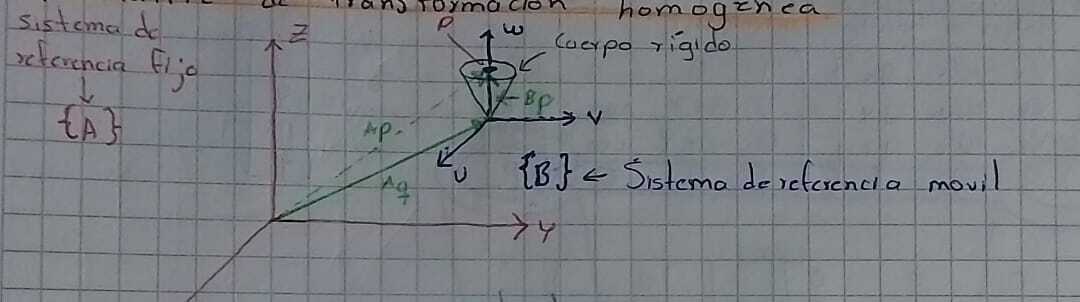 de transformación homogénea
sistema de
referencia fijo
{A}
Z
P
w
Cuerpo rígido
Bp
v
Ap
Aq
u
{B} ← Sistema de referencia movil
y